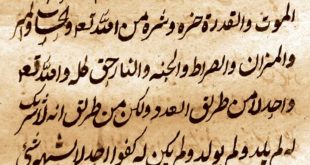 الموت والقدرة خيره وشره من الله تعـ والحساب
والميزان والصراط والجنة والنار حق كله والله تعـ
واحد لا من طريق العدد ولكن من طريق انه لا شريك
له لم يلد ولم يولد ولم يكن له كفوا احد لا يشبه